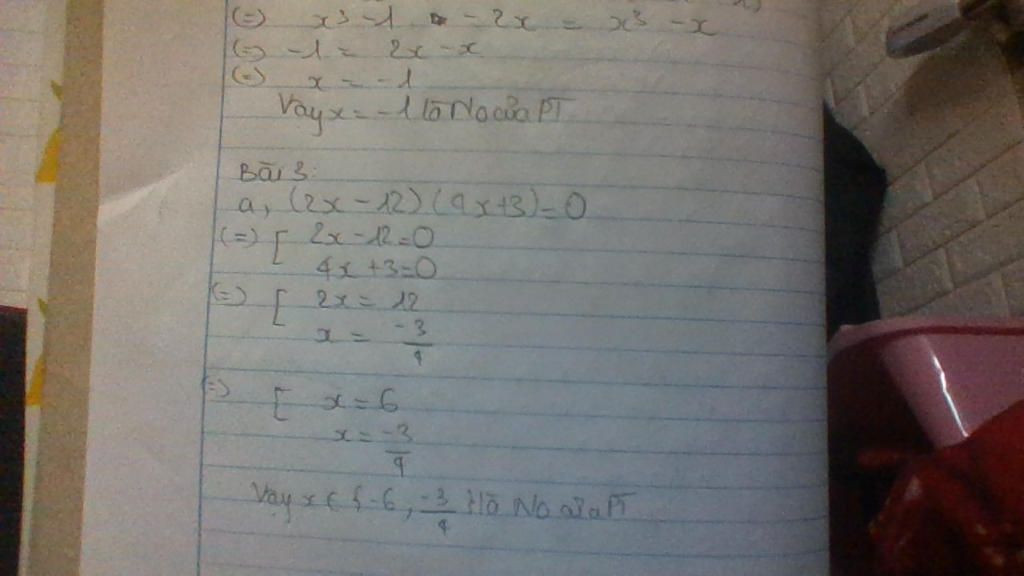 (=) x³ - 1 - 2x = x³ - x
(=) -1 = 2x - x
(=) x = -1
Vậy x = -1 là No của PT
Bài 3:
a, (2x - 12)(4x+3)=0
(=) [ 2x - 12=0
4x +3=0
(=) [ 2x = 12
x = -3/4
(=) [ x = 6
x = -3/4
Vậy x ∈ {-6, -3/4} là No của PT